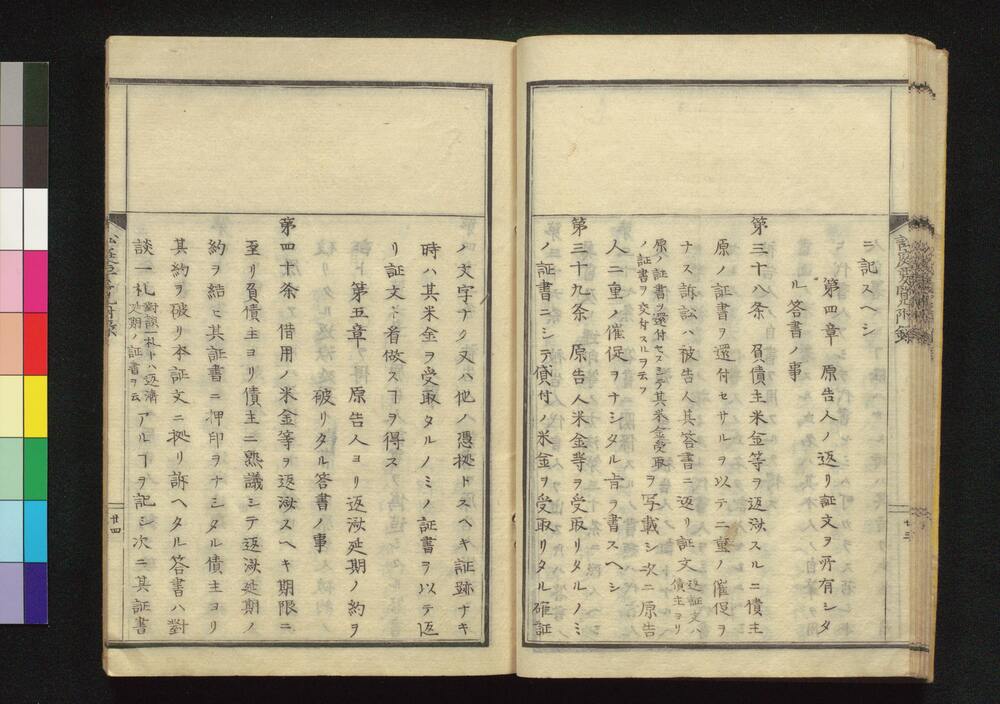 ヲ記スヘシ
第四章　原告人ノ返リ証文ヲ所有シタ
ル答書ノ事
第三十八条　負債主米金等ヲ返済スルニ債主
原ノ証書ヲ還付セサルヲ以テ二重ノ催促ヲ
ナス訴訟ハ被告人其答書ニ返リ証文返証文ハ債主ヨリ
原ノ証書ヲ還付セスシテ其米金受取ノ証書ヲ交付スルヲ云フヲ写載シ次ニ原告
人二重ノ催促ヲナシタル旨ヲ書スヘシ
第三十九条　原告人米金等ヲ受取リタルノミ
ノ証書ニシテ貸付ノ米金ヲ受取リタル確証
ノ文字ナク又ハ他ノ憑拠トスヘキ証跡ナキ
時ハ其米金ヲ受取タルノミノ証書ヲ以テ返
リ証文ト看做スヿヲ得ス
第五章　原告人ヨリ返済延期ノ約ヲ
破リタル答書ノ事
第四十条　借用ノ米金等ヲ返済スヘキ期限ニ
至リ負債主ヨリ債主ニ熟議シテ返済延期ノ
約ヲ結ヒ其証書ニ押印ヲナシタル債主ヨリ
其約ヲ破リ本証文ニ拠リ訴ヘタル答書ハ對
談一札對談一札トハ返済延期ノ証書ヲ云アルヿヲ記シ次ニ其証書
廿四